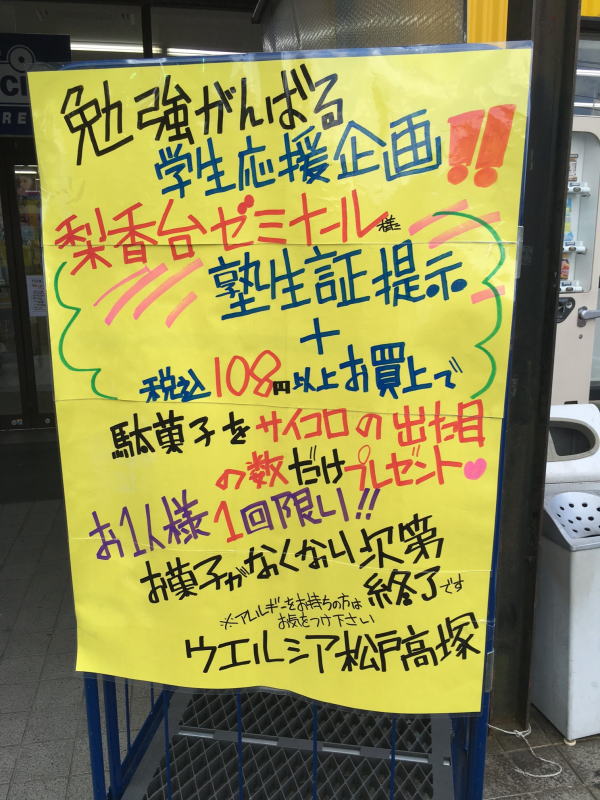 勉強がんばる
学生応援企画!!
梨香台ゼミナール様
塾生証提示
+
税込108円以上お買上で
駄菓子をサイコロの出た目
の数だけプレゼント♥
お1人様1回限り!!
お菓子がなくなり次第
終了です
※アレルギーをお持ちの方は
お気をつけ下さい
ウエルシア松戸高塚